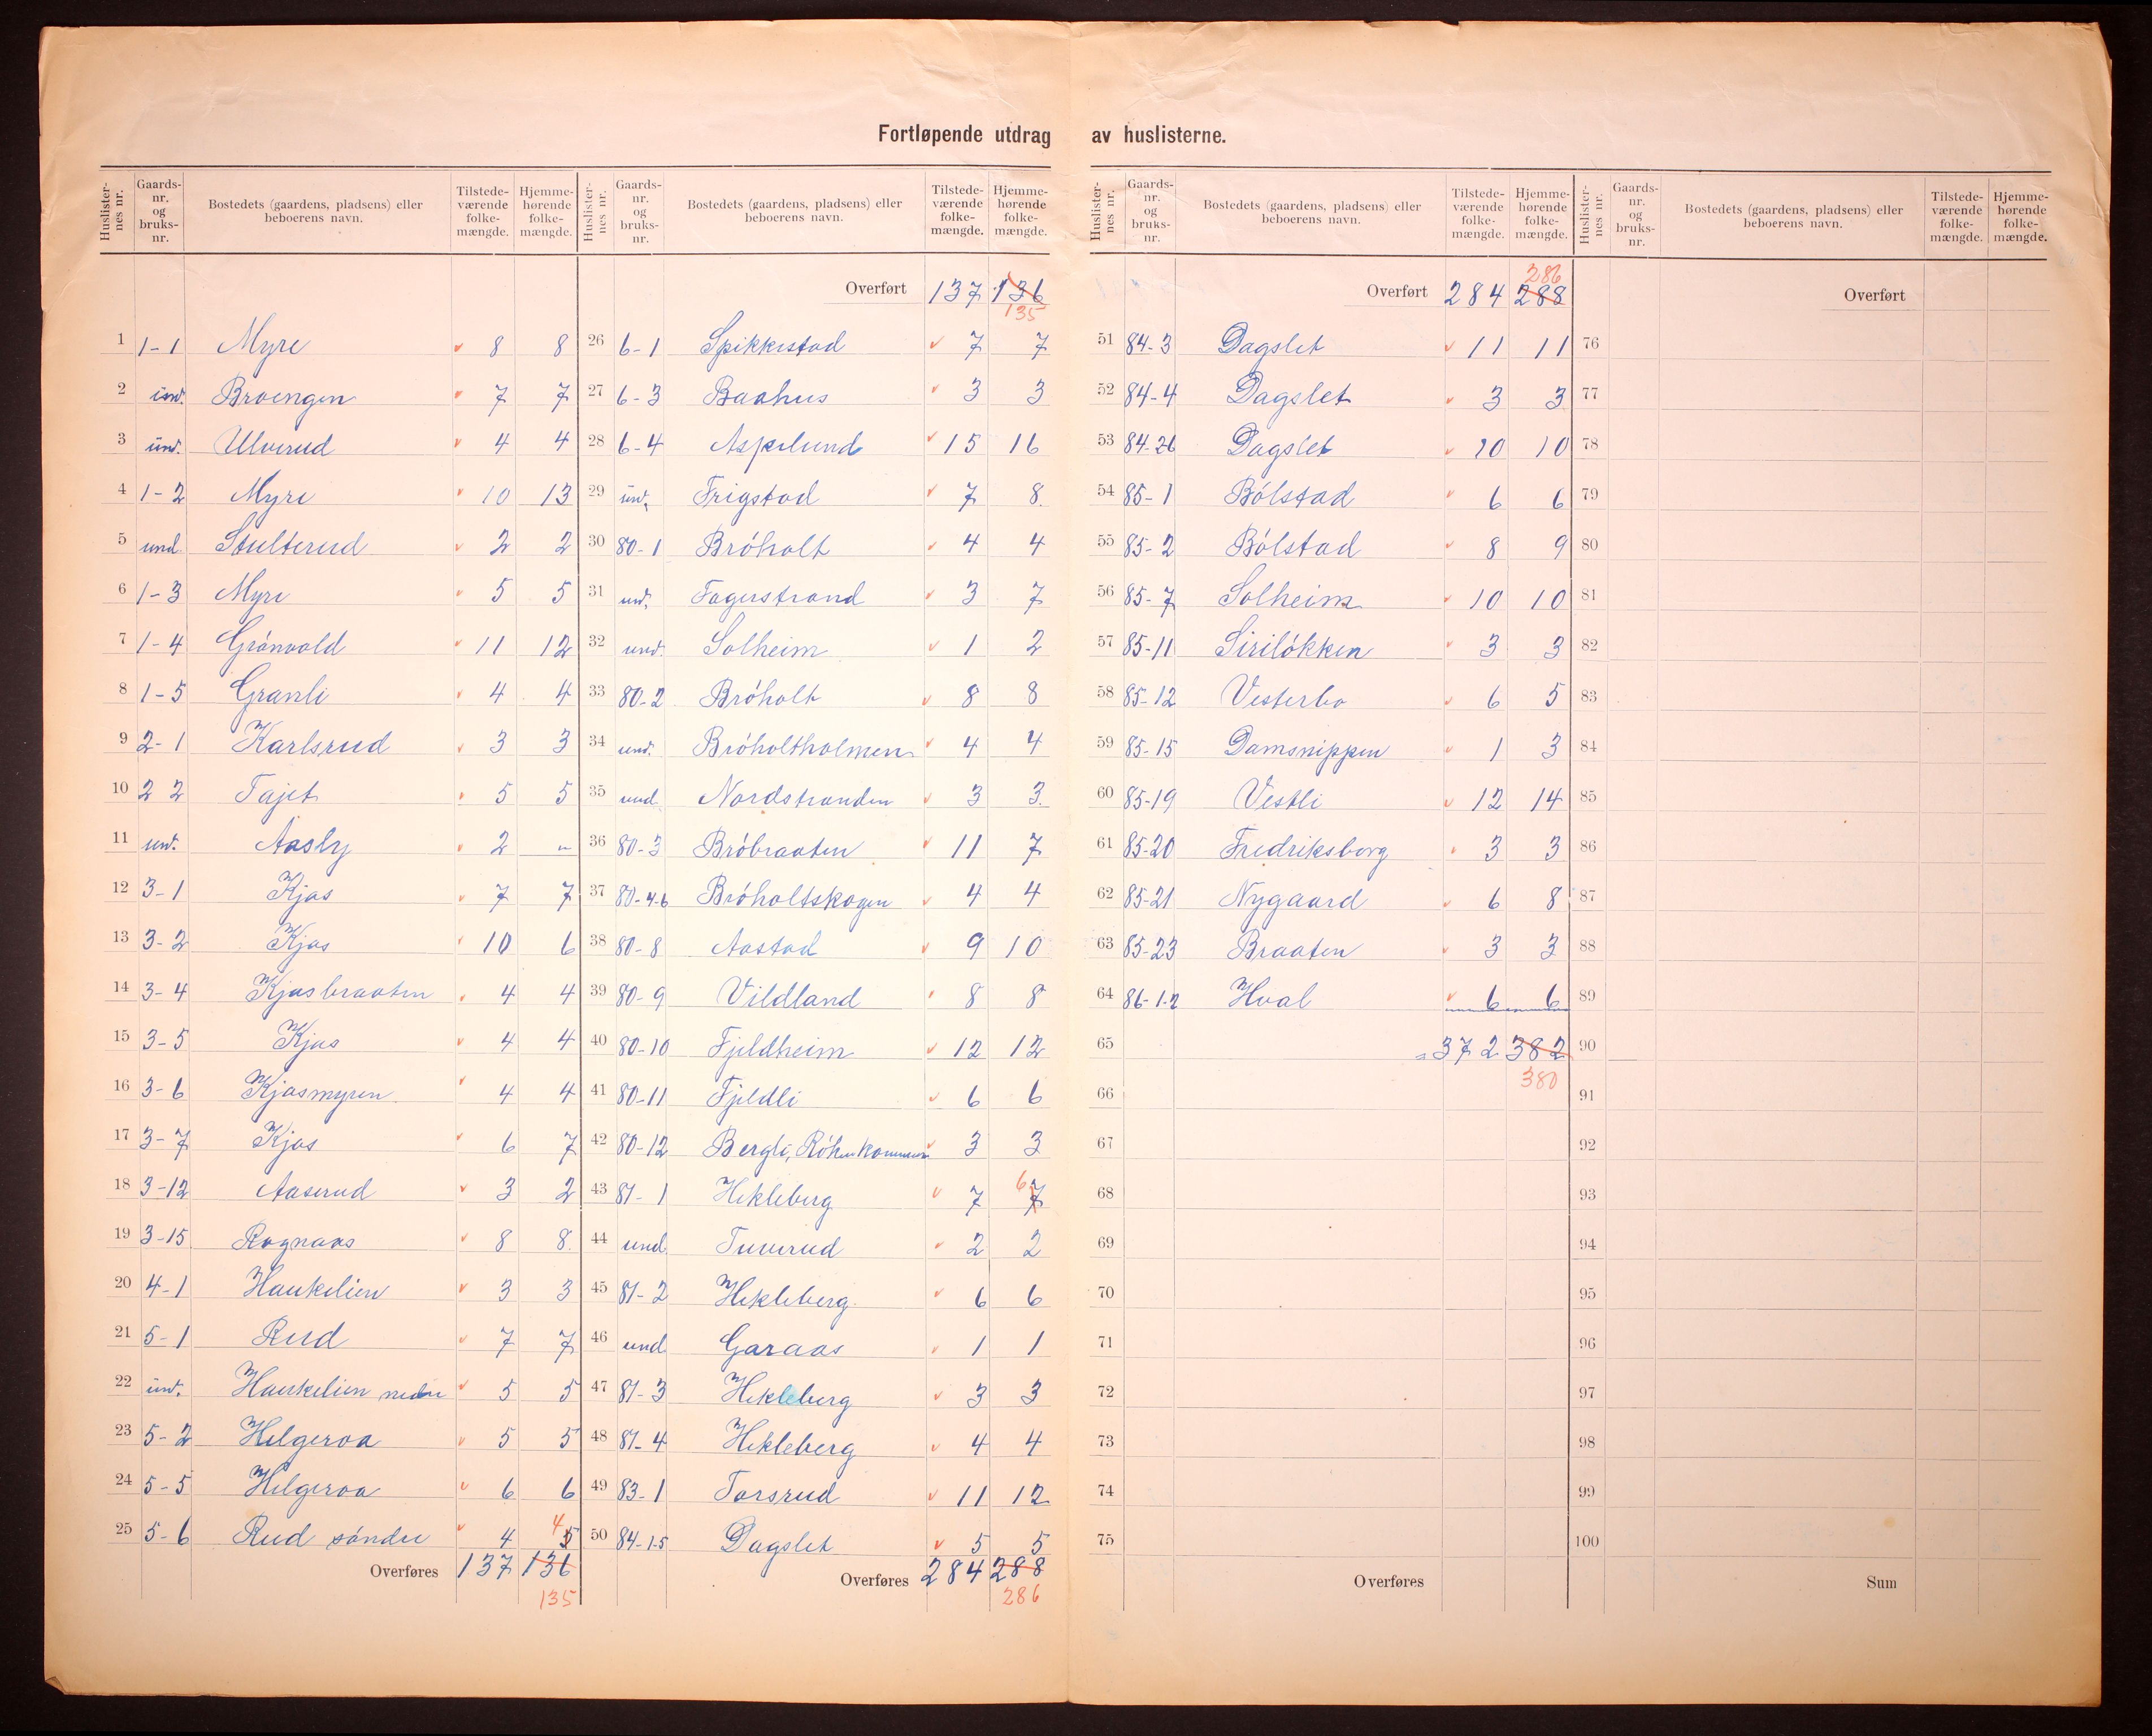 Fortløpende utdrag av huslisterne.
Huslister-nes nr. | Gaards-nr. og bruks-nr. | Bostedets (gaardens, pladsens) eller beboerens navn. | Tilstede-værende folke-mængde. | Hjemme-hørende folke-mængde.
1 1-1 Myre 8 8
2 und. Broengen 7 7
3 und. Ulverud 4 4
4 1-2 Myre 10 13
5 und. Stulterud 2 2
6 1-3 Myre 5 5
7 1-4 Grónvold 11 12
8 1-5 Granli 4 4
9 2-1 Karlsrud 3 3
10 2 2 Tajet 5 5
11 und. Aasly 2 „
12 3-1 Kjos 7 7
13 3-2 Kjos 10 6
14 3-4 Kjosbraaten 4 4
15 3-5 Kjos 4 4
16 3-6 Kjosmyren 4 4
17 3-7 Kjos 6 7
18 3-12 Aaserud 3 2
19 3-15 Rognaas 8 8
20 4-1 Haukelien 3 3
21 5-1 Rud 7 7
22 und. Haukelien nedre 5 5
23 5-2 Helgeroa 5 5
24 5-5 Helgeroa 6 6
25 5-6 Rud sóndre 4 5 4
Overføres 137 136
135
Huslister-nes nr. | Gaards-nr. og bruks-nr. | Bostedets (gaardens, pladsens) eller beboerens navn. | Tilstede-værende folke-mængde. | Hjemme-hørende folke-mængde.
Overført 137 136
135
26 6-1 Spikkestad 7 7
27 6-3 Baahus 3 3
28 6-4 Aspelund 15 16
29 und. Frigstad 7 8
30 80-1 Bróholt 4 4
31 und. Fagerstrand 3 7
32 und. Solheim 1 2
33 80-2 Bróholt 8 8
34 und. Bróholtholmen 4 4
35 und. Nordstranden 3 3
36 80-3 Bróbraaten 11 7
37 80-4-6 Bróholtskogen 4 4
38 80-8 Aastad 9 10
39 80-9 Vildland 8 8
40 80-10 Fjeldheim 12 12
41 80-11 Fjeldli 6 6
42 80-12 Bergli, Róken kommune 3 3
43 81-1 Hekleberg 7 7 6
44 und. Tuverud 2 2
45 81-2 Hekleberg 6 6
46 und. Garaas 1 1
47 81-3 Hekleberg 3 3
48 81-4 Hekleberg 4 4
49 83-1 Torsrud 11 12
50 84-1-5 Dagslet 5 5
Overføres 284 288
286
Huslister-nes nr. | Gaards-nr. og bruks-nr. | Bostedets (gaardens, pladsens) eller beboerens navn. | Tilstede-værende folke-mængde. | Hjemme-hørende folke-mængde.
286
Overført 284 288
51 84-3 Dagslet 11 11
52 84-4 Dagslet 3 3
53 84-26 Dagslet 10 10
54 85-1 Bólstad 6 6
55 85-2 Bólstad 8 9
56 85-7 Solheim 10 10
57 85-11 Sirilókken 3 3
58 85-12 Vesterbo 6 5
59 85-15 Damsnippen 1 3
60 85-19 Vestli 12 14
61 85-20 Fredriksborg 3 3
62 85-21 Nygaard 6 8
63 85-23 Braaten 3 3
64 86-1-2 Hval 6 6
65 =372 382
66 380
67
68
69
70
71
72
73
74
75
Overføres
Huslister-nes nr. | Gaards-nr. og bruks-nr. | Bostedets (gaardens, pladsens) eller beboerens navn. | Tilstede-værende folke-mængde. | Hjemme-hørende folke-mængde.
Overført
76
77
78
79
80
81
82
83
84
85
86
87
88
89
90
91
92
93
94
95
96
97
98
99
100
Sum